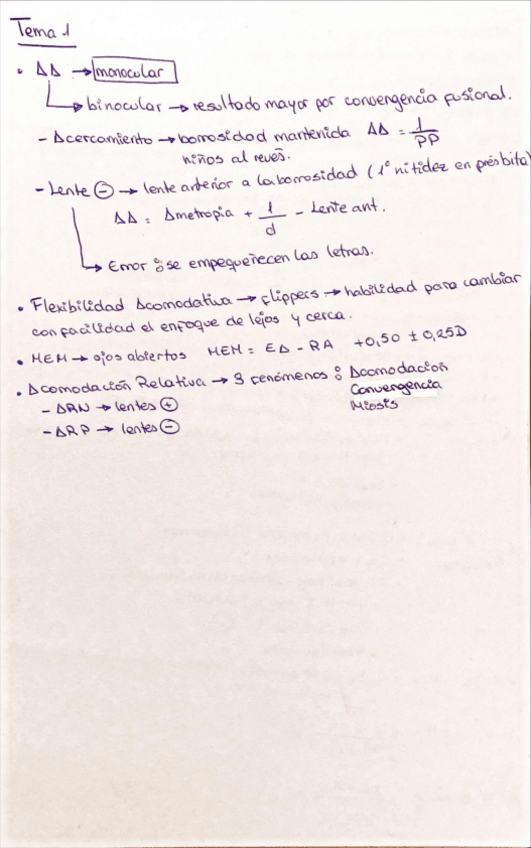 Tema 1
• ΔΔ → monocular
↳ binocular → resultado mayor por convergencia fusional.
- Δcercamiento → borrosidad mantenida ΔΔ = 1/PP
niños al revés.
- Lente ⊖ → lente anterior a la borrosidad (1º nitidez en présbita)
ΔΔ = Δmetropía + 1/d - Lente ant.
↳ Error : se empequeñecen las letras.
• Flexibilidad Δcomodativa → flippers → habilidad para cambiar
con facilidad el enfoque de lejos y cerca.
• MEM → ojos abiertos MEM = EΔ - RA +0,50 ± 0,25D
• Δcomodación Relativa → 3 fenómenos : Δcomodación
Convergencia
- ΔRN → lentes ⊕ Miosis
- ΔRP → lentes ⊖